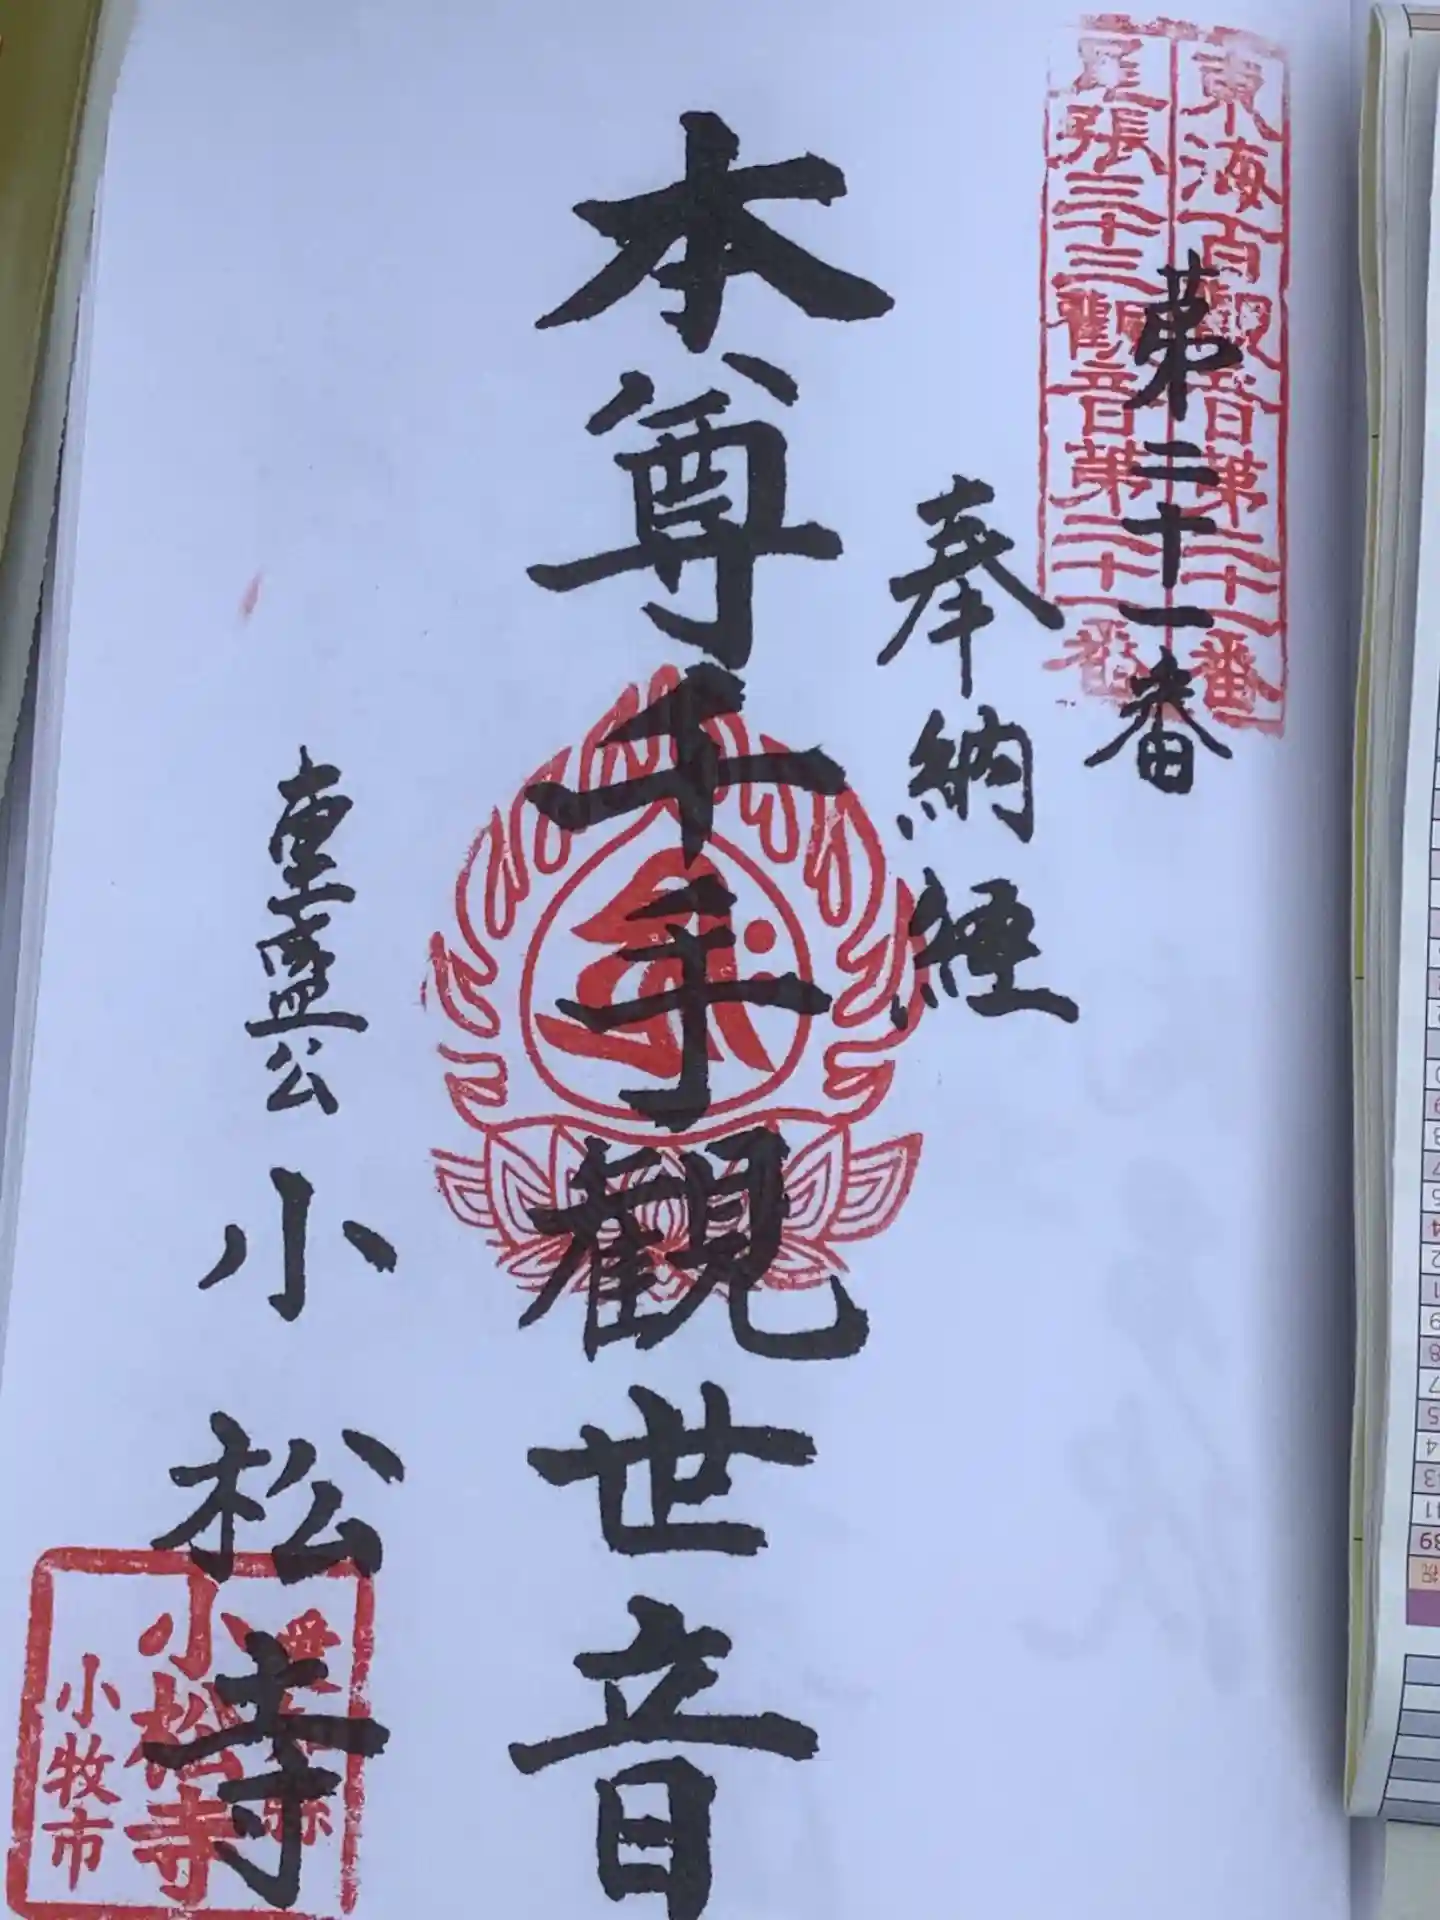 東海百觀音第二十一番
尾張三十三觀音第二十一番
第二十一番
奉納経
本尊千手観世音
重盛公 小松寺
愛知縣
小松寺
小牧市